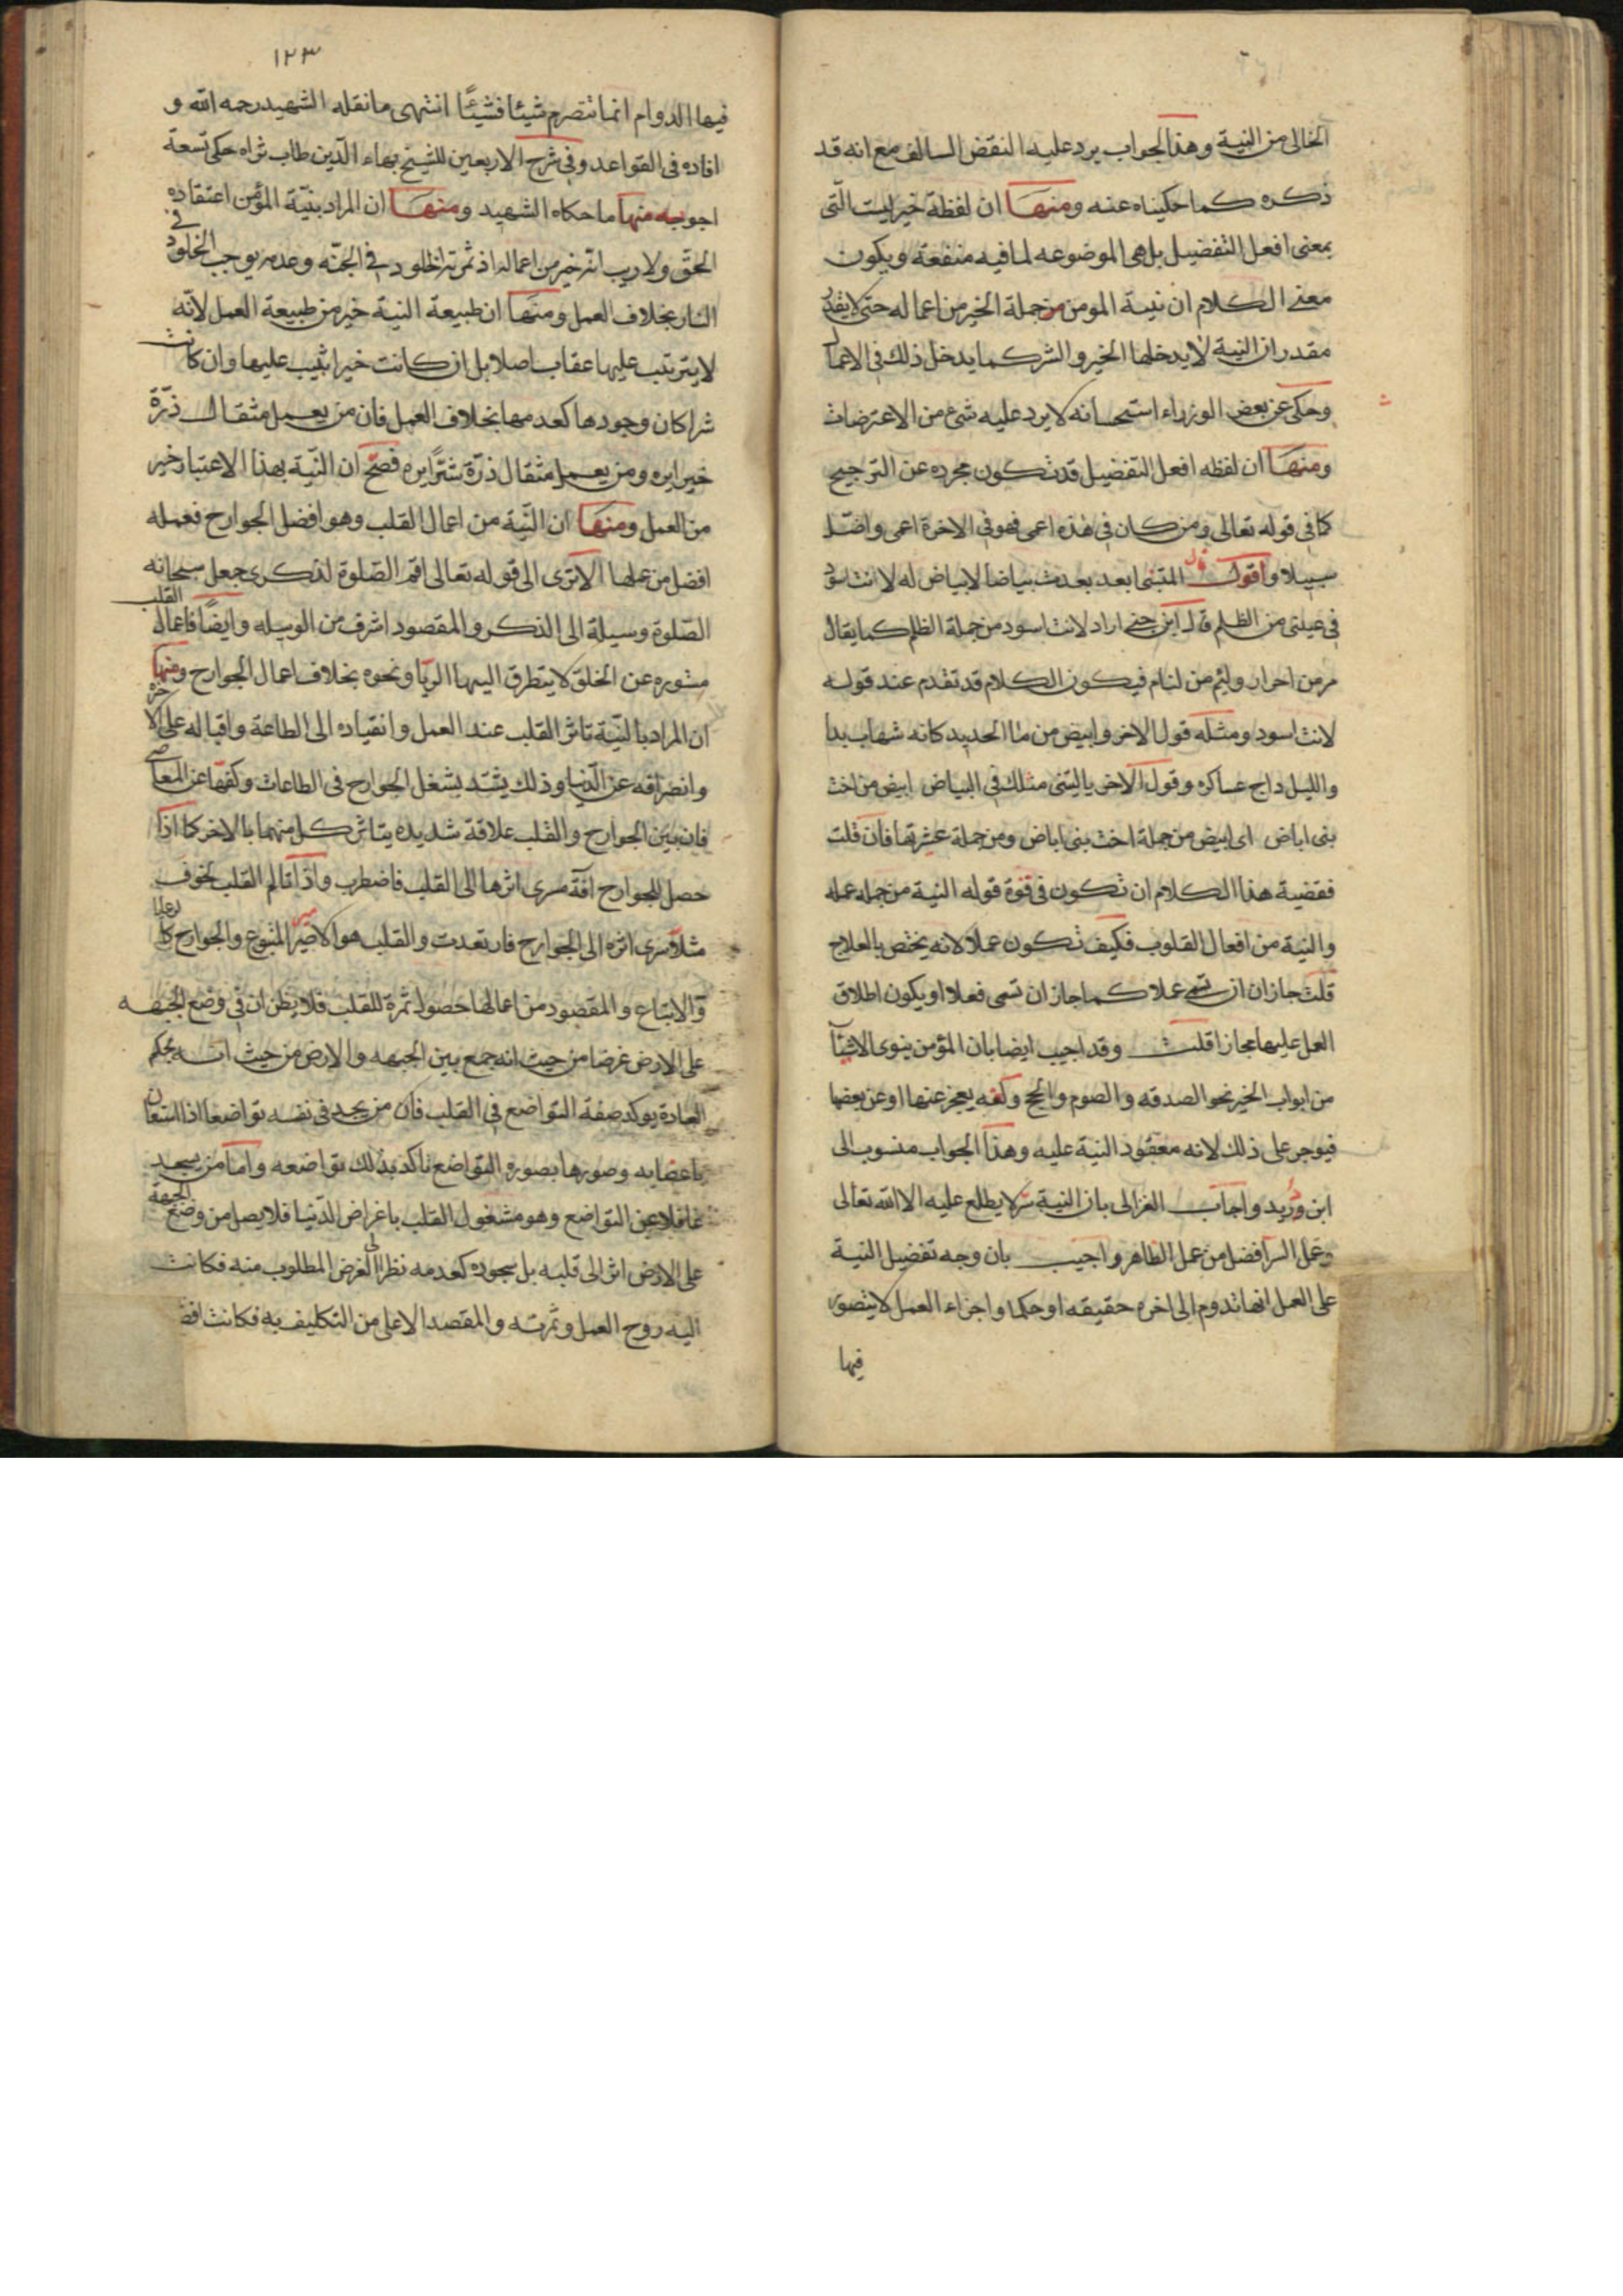 الخالى من النية وهذا الجواب يرد عليه النقض السالف مع انه قد
ذكره كما حكيناه عنه ومنها ان لفظة خير ليست التى
بمعنى افعل التفضيل بل هى الموضوعه لما فيه منفعة ويكون
معنى الكلام ان نية المومن من جملة الخير من اعماله حتى لا يقدر
مقدر ان النية لا يدخلها الخير والشر كما يدخل ذلك فى الاعمال
وحكى عن بعض الوزراء استحسانه لا يرد عليه شئ من الاعتراضات
ومنها ان لفظه افعل التفضيل قد تكون مجرده عن الترجيح
كما فى قوله تعالى ومن كان فى هذه اعمى فهو فى الاخرة اعمى واضل
سبيلا واقول قال المتنبى ابعد بعدت بياضا لا بياض له لانت اسود
فى عينى من الظلم قال ابن جنى اراد لانت اسود من جملة الظلم كما يقال
مر من احرار ولئيم من لئام فيكون الكلام قد تقدم عند قوله
لانت اسود ومثله قول الاخر وابيض من ما الحديد كانه شهاب بدا
والليل داج عساكره وقول الاخر يا ليتنى مثلك فى البياض ابيض من اخت
بنى اباض اى ابيض من جملة اخت بنى اباض ومن جملة عشرتها فان قلت
فقضية هذا الكلام ان تكون فى قوة قوله النية من جمله عمله
والنية من افعال القلوب فكيف تكون عملا لانه يختص بالعلاج
قلت جاز ان تسمى عملا كما جاز ان تسمى فعلا او يكون اطلاق
العمل عليها مجازا قلت وقد اجيب ايضا بان المؤمن ينوى الاشيآ
من ابواب الخير نحو الصدقه والصوم والحج ولعله يعجز عنها او عن بعضها
فيوجر على ذلك لانه معقود النية عليه وهذا الجواب منسوب الى
ابن دريد واجاب الغزالى بان النية سر لا يطلع عليه الا الله تعالى
وعمل السر افضل من عمل الظاهر واجيب بان وجه تفضيل النية
على العمل انها تدوم الى اخره حقيقه او حكما واجزاء العمل لا يتصور
فيها
١٢٣
فيها الدوام انما تتصرم شيئا فشيئًا انتهى ما نقله الشهيد رحمه الله و
افاده فى القواعد وفى شرح الاربعين للشيخ بهاء الدّين طاب ثراه حكى تسعة
اجوبه منها ما حكاه الشهيد ومنها ان المراد بنيّة المؤمن اعتقاده
الحق ولا ريب انه خير من اعماله اذ ثمرته الخلود فى الجنّه وعدمه يوجب الخلود فى
النار بخلاف العمل ومنها ان طبيعة النية خير من طبيعة العمل لانّه
لا يترتب عليها عقاب اصلا بل ان كانت خيرا اثيب عليها وان كانت
شرا كان وجودها كعدمها بخلاف العمل فان من يعمل مثقال ذرّة
خيرا يره ومن يعمل مثقال ذرّة شرًا يره فصحّ ان النّية بهذا الاعتبار خير
من العمل ومنها ان النّية من اعمال القلب وهو افضل الجوارح فعمله
افضل من عملها الا ترى الى قوله تعالى اقم الصّلوة لذكرى جعل سبحانه
الصّلوة وسيلة الى الذكر والمقصود اشرف من الوسيله وايضًا فاعمال القلب
مستوره عن الخلق لا يتطرق اليها الريا ونحوه بخلاف اعمال الجوارح ومنها
ان المراد بالنّية تاثر القلب عند العمل وانقياده الى الطاعة واقباله على الاخره
وانصرافه عن الدّنيا وذلك يشتد بشغل الجوارح فى الطاعات وكفّها عن المعاصى
فان بين الجوارح والقلب علاقة شديده يتاثر كل منهما بالاخر كما اذا
حصل للجوارح افة سرى اثرها الى القلب فاضطرب واذا تالم القلب لخوف
مثلا سرى اثره الى الجوارح فارتعدت والقلب هو الامير المتبوع والجوارح كالرعايا
والاتباع والمقصود من اعمالها حصول ثمرة للقلب فلا يظن ان فى وضع الجبهه
على الارض غرضا من حيث انه جمع بين الجبهه والارض من حيث انه بحكم
العادة يوكد صفة التواضع فى القلب فان من يجد فى نفسه تواضعا اذا استعان
باعضايه وصورها بصورة التواضع تاكد بذلك تواضعه واما من يسجد
غافلا عن التواضع وهو مشغول القلب باغراض الدّنيا فلا يصل من وضع الجبهة
على الارض اثر الى قلبه بل سجوده كعدمه نظرا الى الغرض المطلوب منه فكانت
النيه روح العمل وثمرته والمقصد الاعلى من التكليف به فكانت افضل